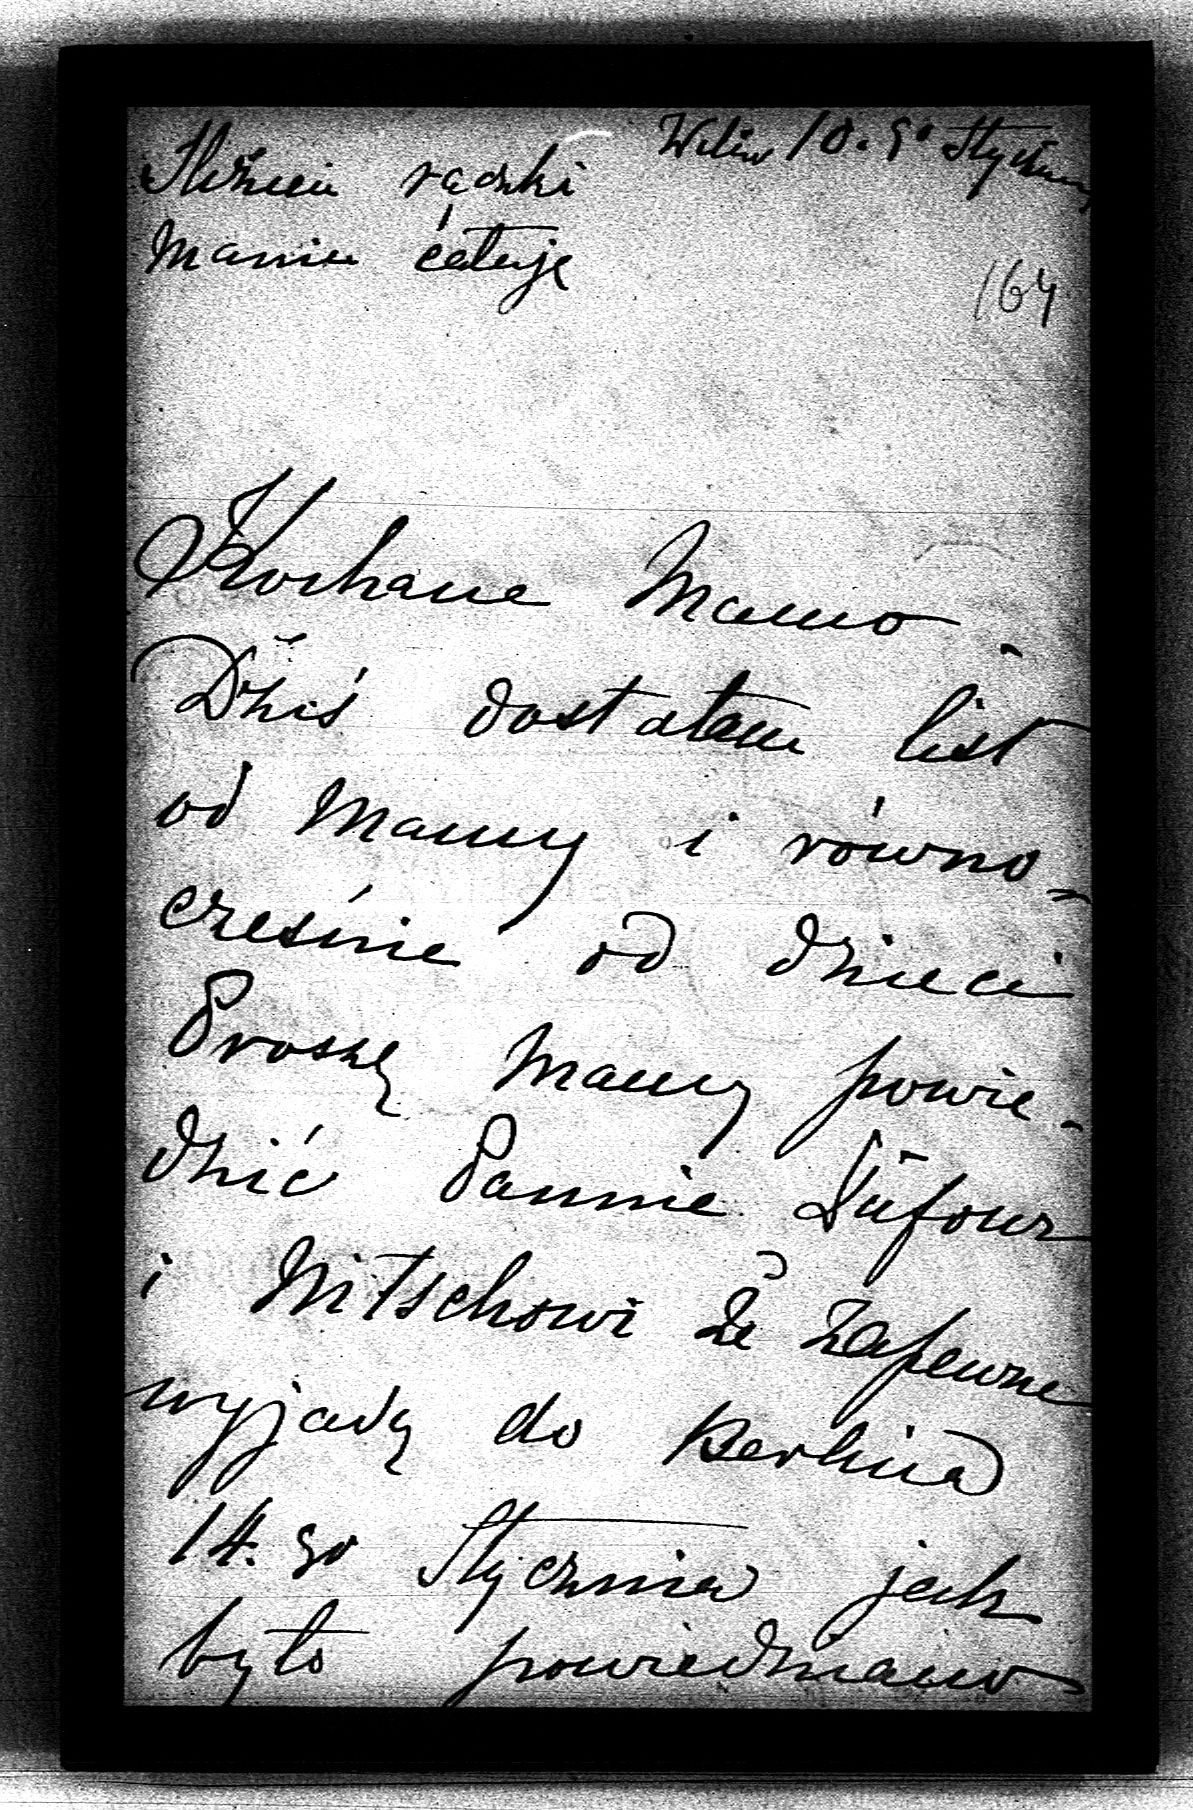 Wilno 10. go Stycznia
rączki
Mamie całuję
164
Kochana Mamo.
Dziś dostałam list
od Mamy i równo-
cześnie od dzieci
Proszę Mamy powie-
dzić Pannie Dufour
i Nitschowi że zapewne
wyjadę do Berlina
14. go Stycznia jak
było powiedziano